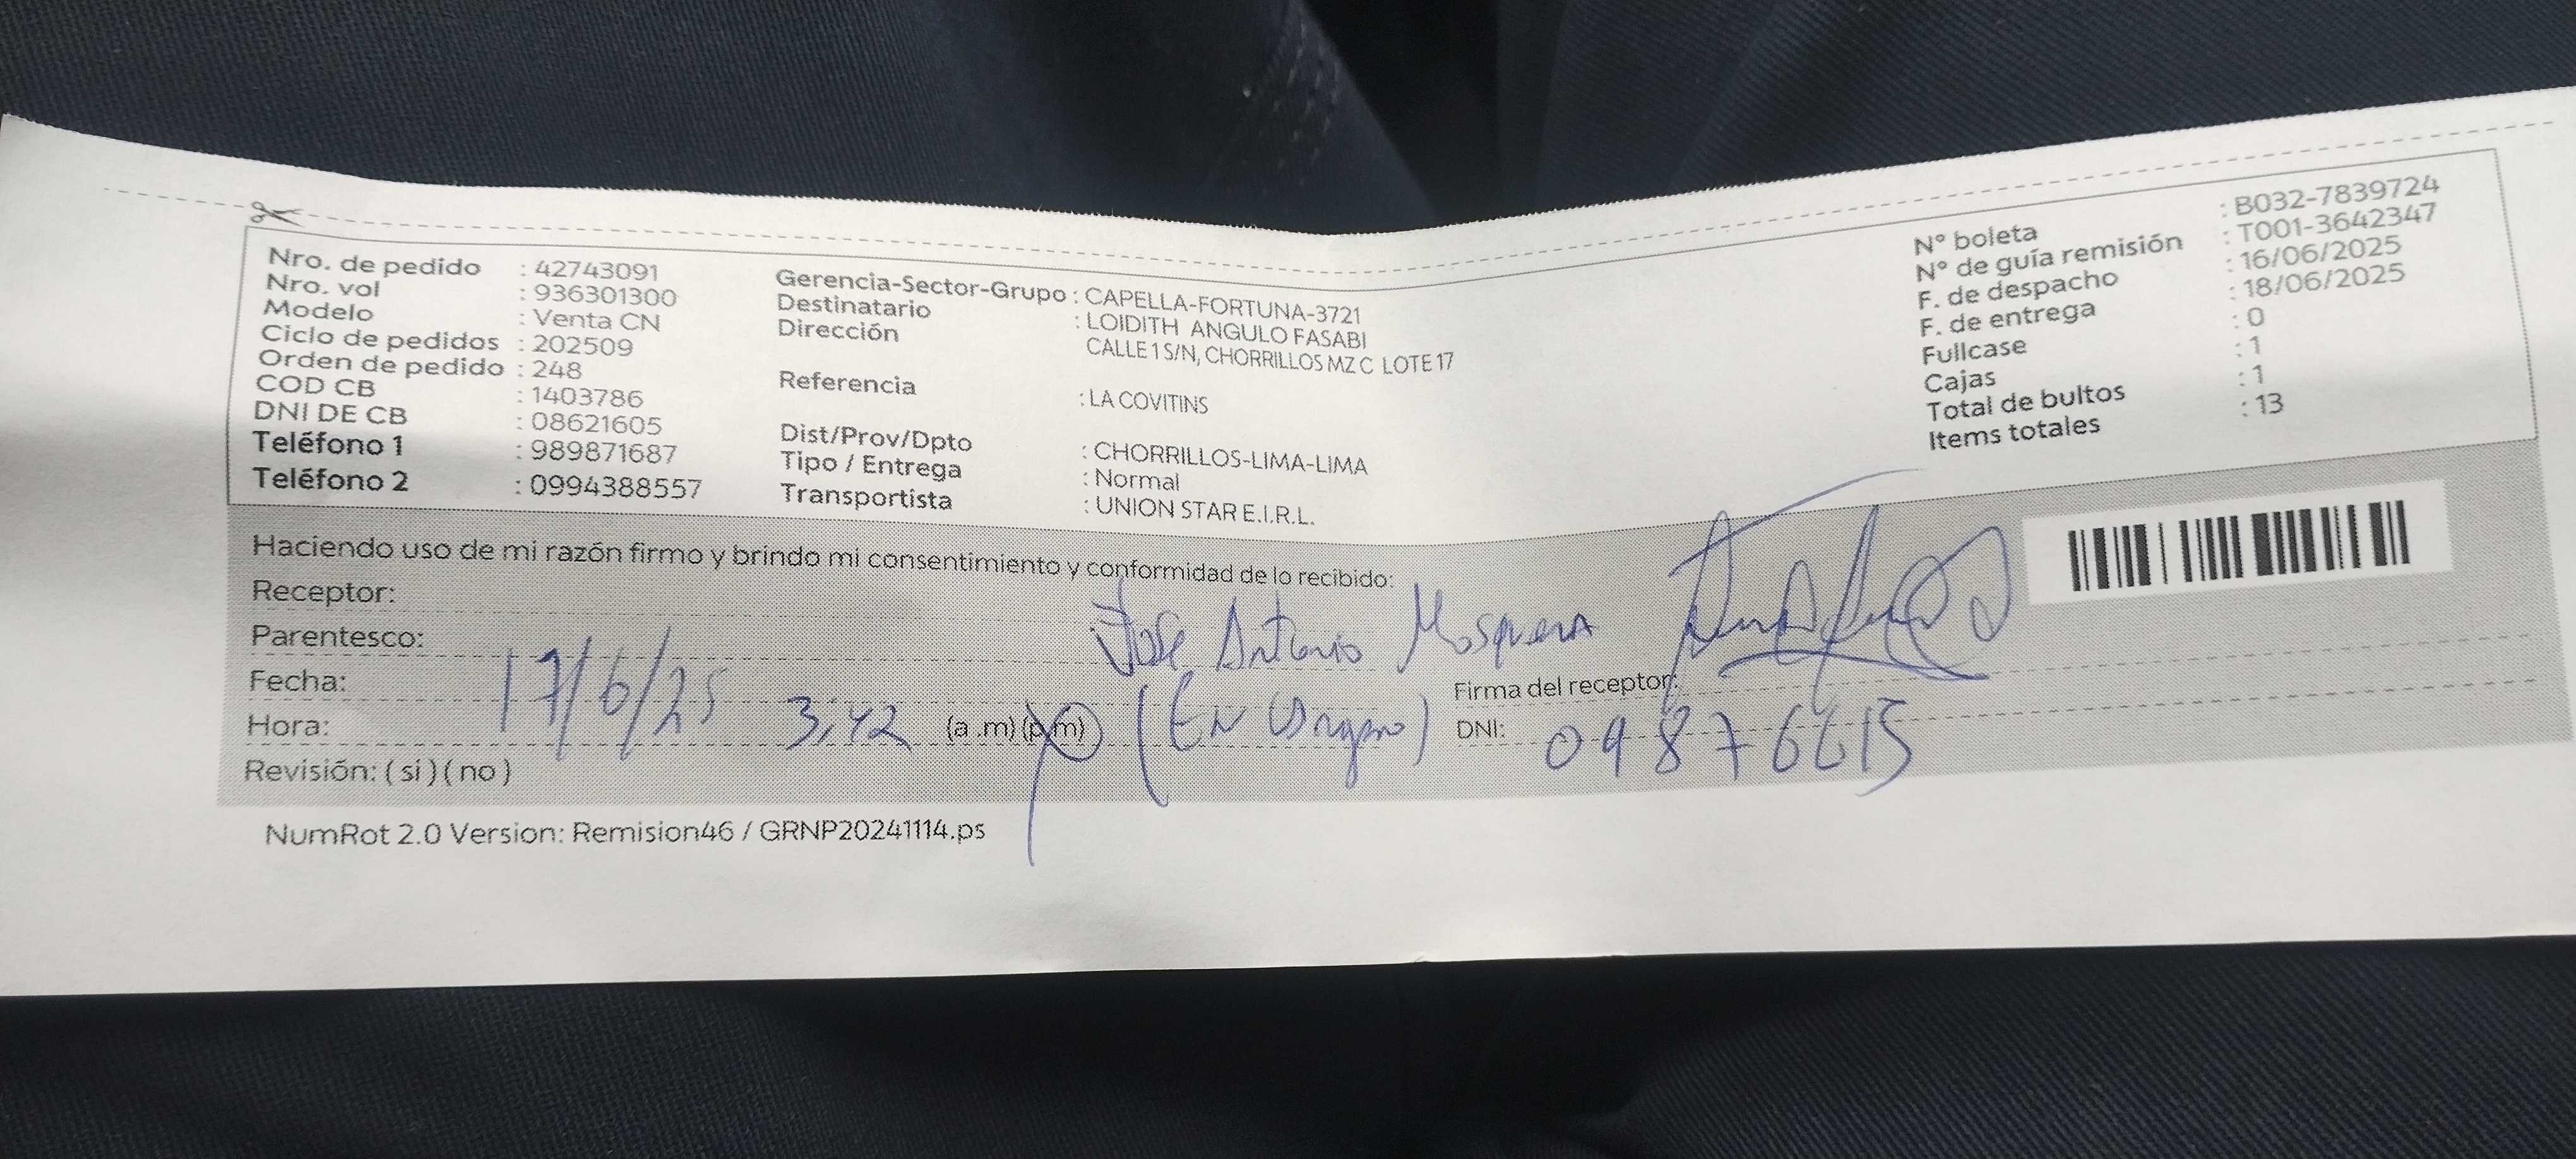 Nro. de pedido : 42743091
Nro. vol : 936301300
Modelo : Venta CN
Ciclo de pedidos : 202509
Orden de pedido : 248
COD CB : 1403786
DNI DE CB : 08621605
Teléfono 1 : 989871687
Teléfono 2 : 0994388557
Gerencia-Sector-Grupo : CAPELLA-FORTUNA-3721
Destinatario : LOIDITH ANGULO FASABI
Dirección CALLE 1 S/N, CHORRILLOS MZ C LOTE 17
Referencia : LA COVITINS
Dist/Prov/Dpto : CHORRILLOS-LIMA-LIMA
Tipo / Entrega : Normal
Transportista : UNION STAR E.I.R.L.
N° boleta : B032-7839724
N° de guía remisión : T001-3642347
F. de despacho : 16/06/2025
F. de entrega : 18/06/2025
Fullcase : 0
Cajas : 1
Total de bultos : 1
Items totales : 13
Haciendo uso de mi razón firmo y brindo mi consentimiento y conformidad de lo recibido:
Receptor:
Parentesco: Jose Antonio Mosquera
Fecha: 17/6/25 Firma del receptor:
Hora: 3,42 (a .m) (p.m) (En DNI:
Revisión: ( si ) ( no )
NumRot 2.0 Version: Remision46 / GRNP20241114.ps